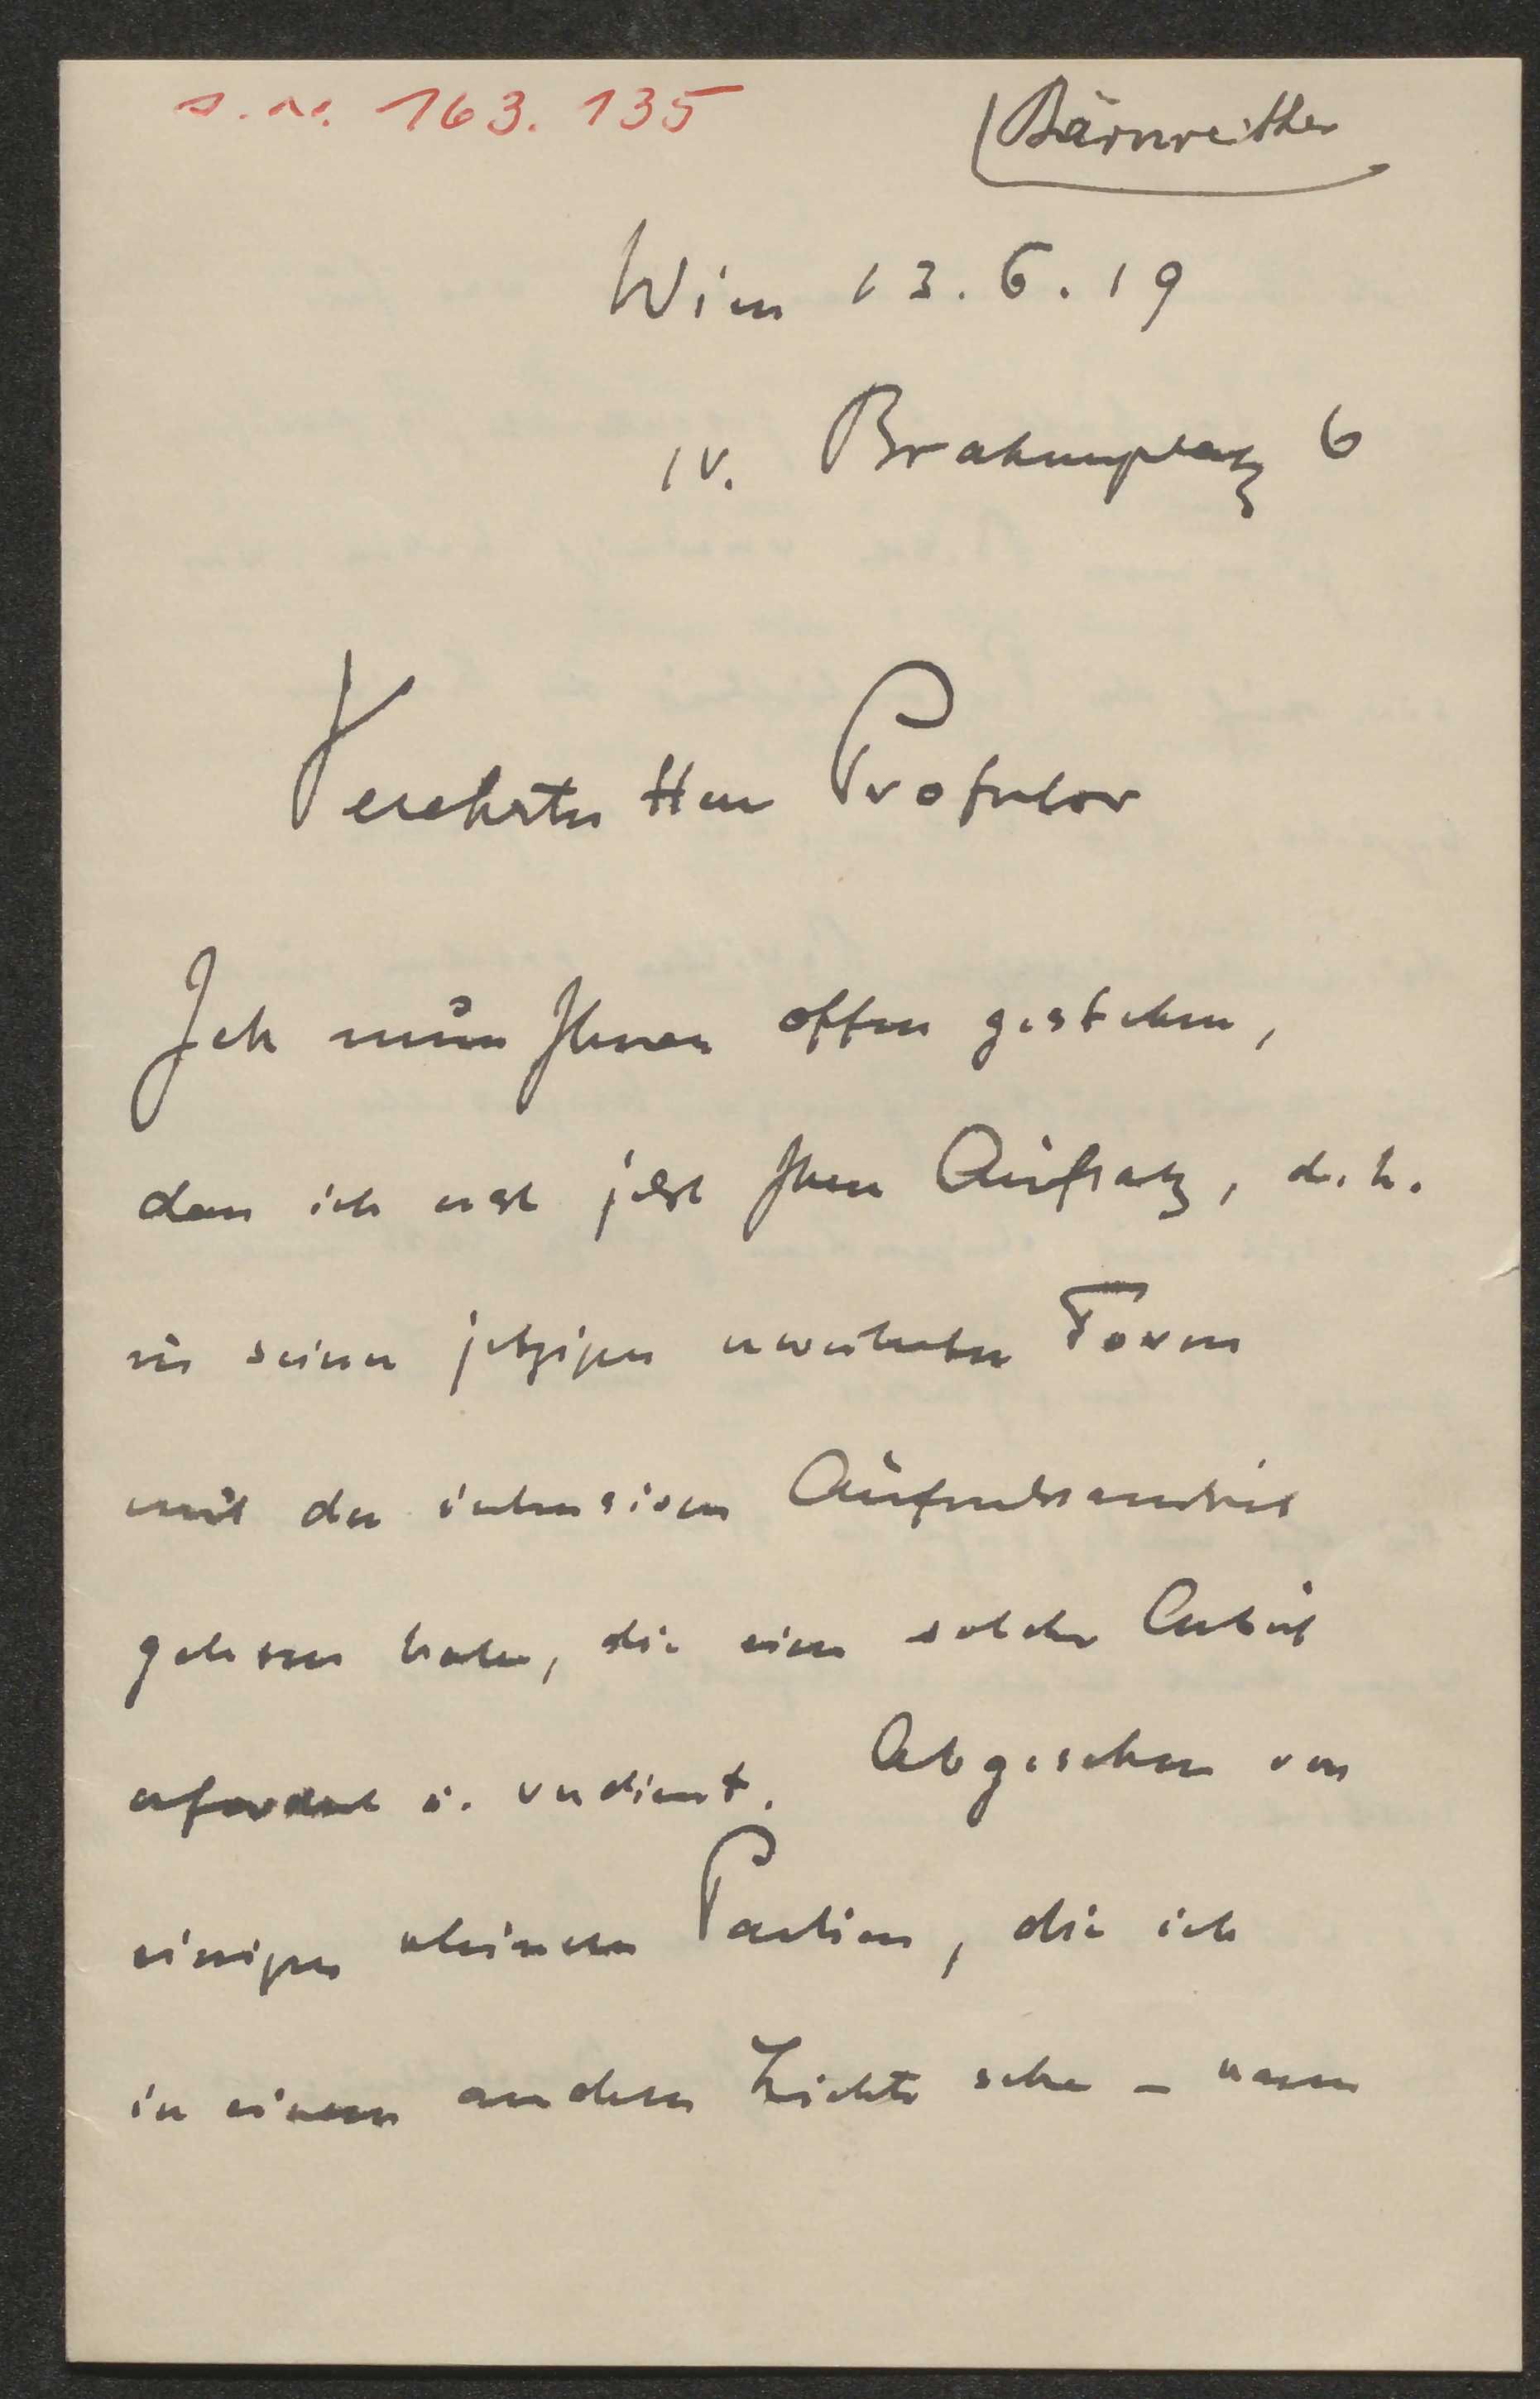 s. n. 163.135
Bärnreither
Wien 13.6.19
IV. Brahmsplatz 6
Verehrter Herr Professor
Ich muss Ihnen offen gestehen,
dass ich erst jetzt Ihren Aufsatz, d. h.
in seiner jetzigen erweiterten Form
mit der intensiven Aufmerksamkeit
gelesen habe, die eine solche Arbeit
erfordert u. verdient. Abgesehen von
einigen kleineren Partien, die ich
in einem andern Lichte sehe –